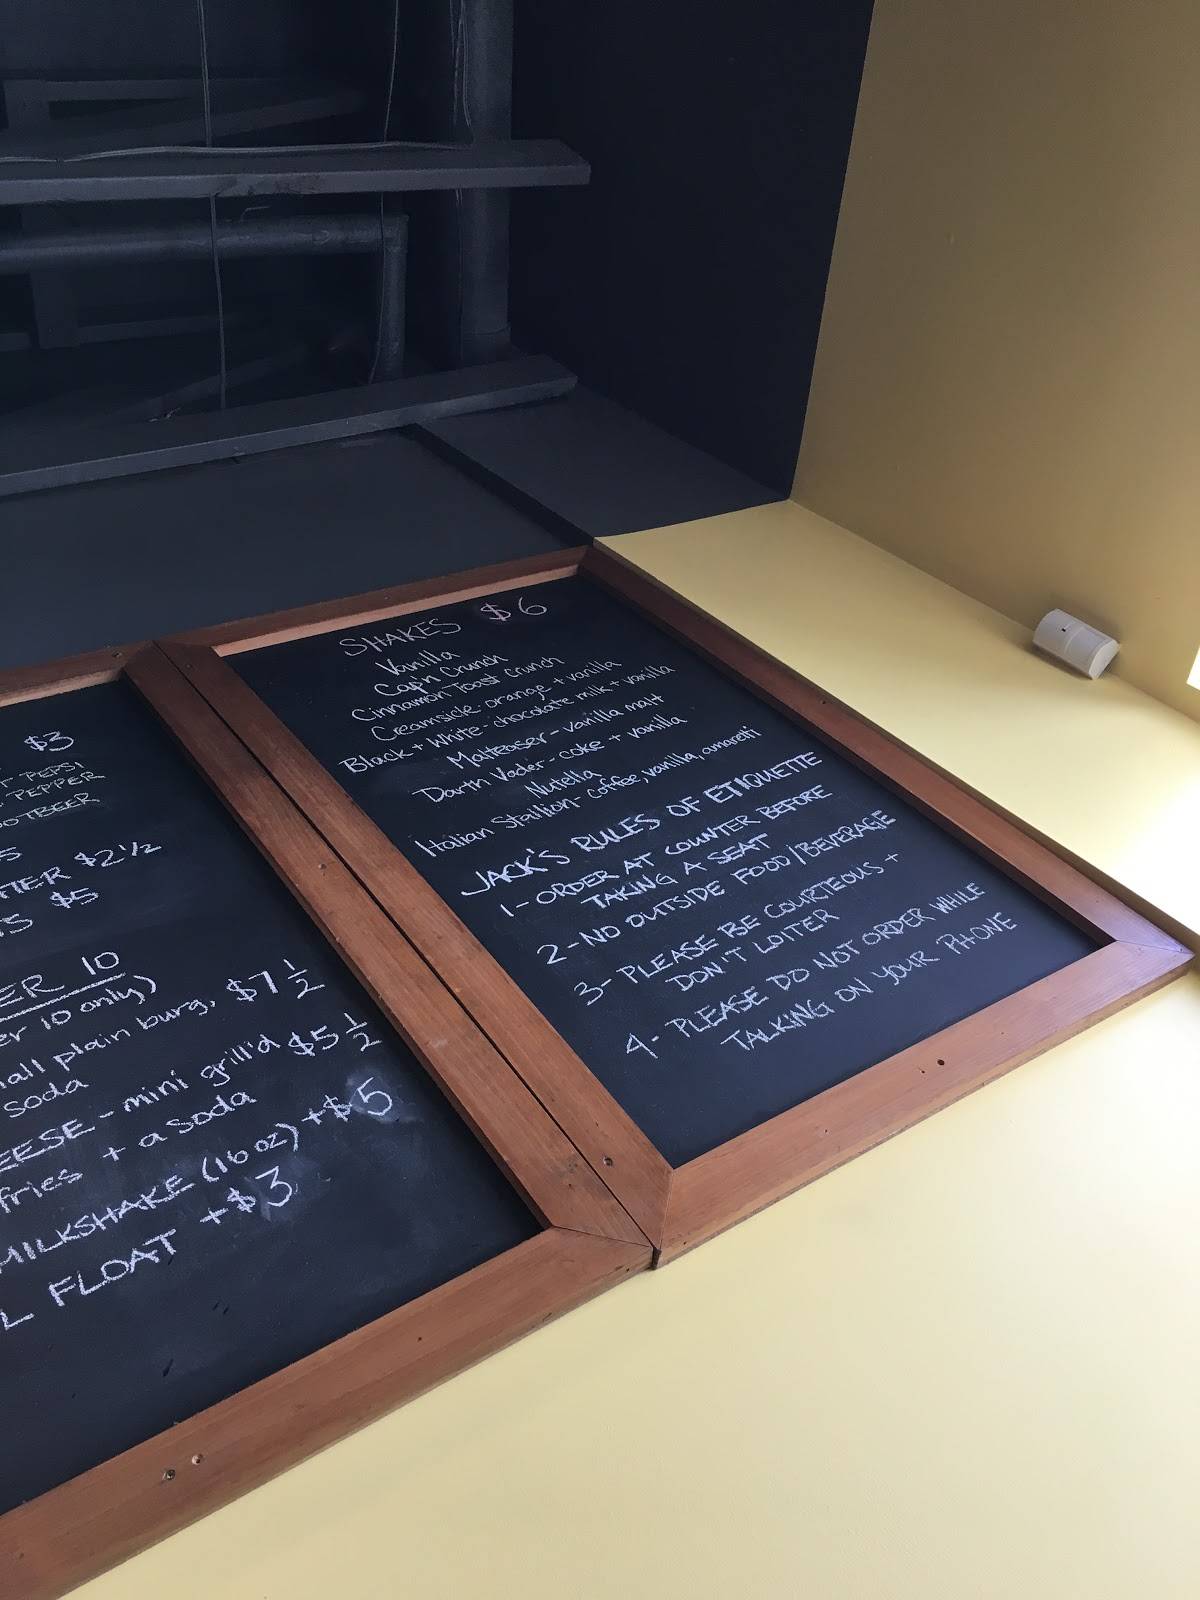 $3
T PEPSI
PEPPER
OOTBEER
$2 1/2
$5
ER 10
er 10 only)
all plain burg, $7 1/2
soda
EESE - mini grill'd $5 1/2
fries + a soda
MILKSHAKE (16 oz) +$5
L FLOAT +$3
SHAKES $6
Vanilla
Cap'n Crunch
Cinnamon Toast Crunch
Creamsicle - orange + vanilla
Black + White - chocolate milk + vanilla
Malteaser - vanilla malt
Darth Vader - coke + vanilla
Nutella
Italian Stallion - coffee, vanilla, amaretti
JACK'S RULES OF ETIQUETTE
1 - ORDER AT COUNTER BEFORE
TAKING A SEAT
2 - NO OUTSIDE FOOD/BEVERAGE
3 - PLEASE BE COURTEOUS +
DON'T LOITER
4 - PLEASE DO NOT ORDER WHILE
TALKING ON YOUR PHONE